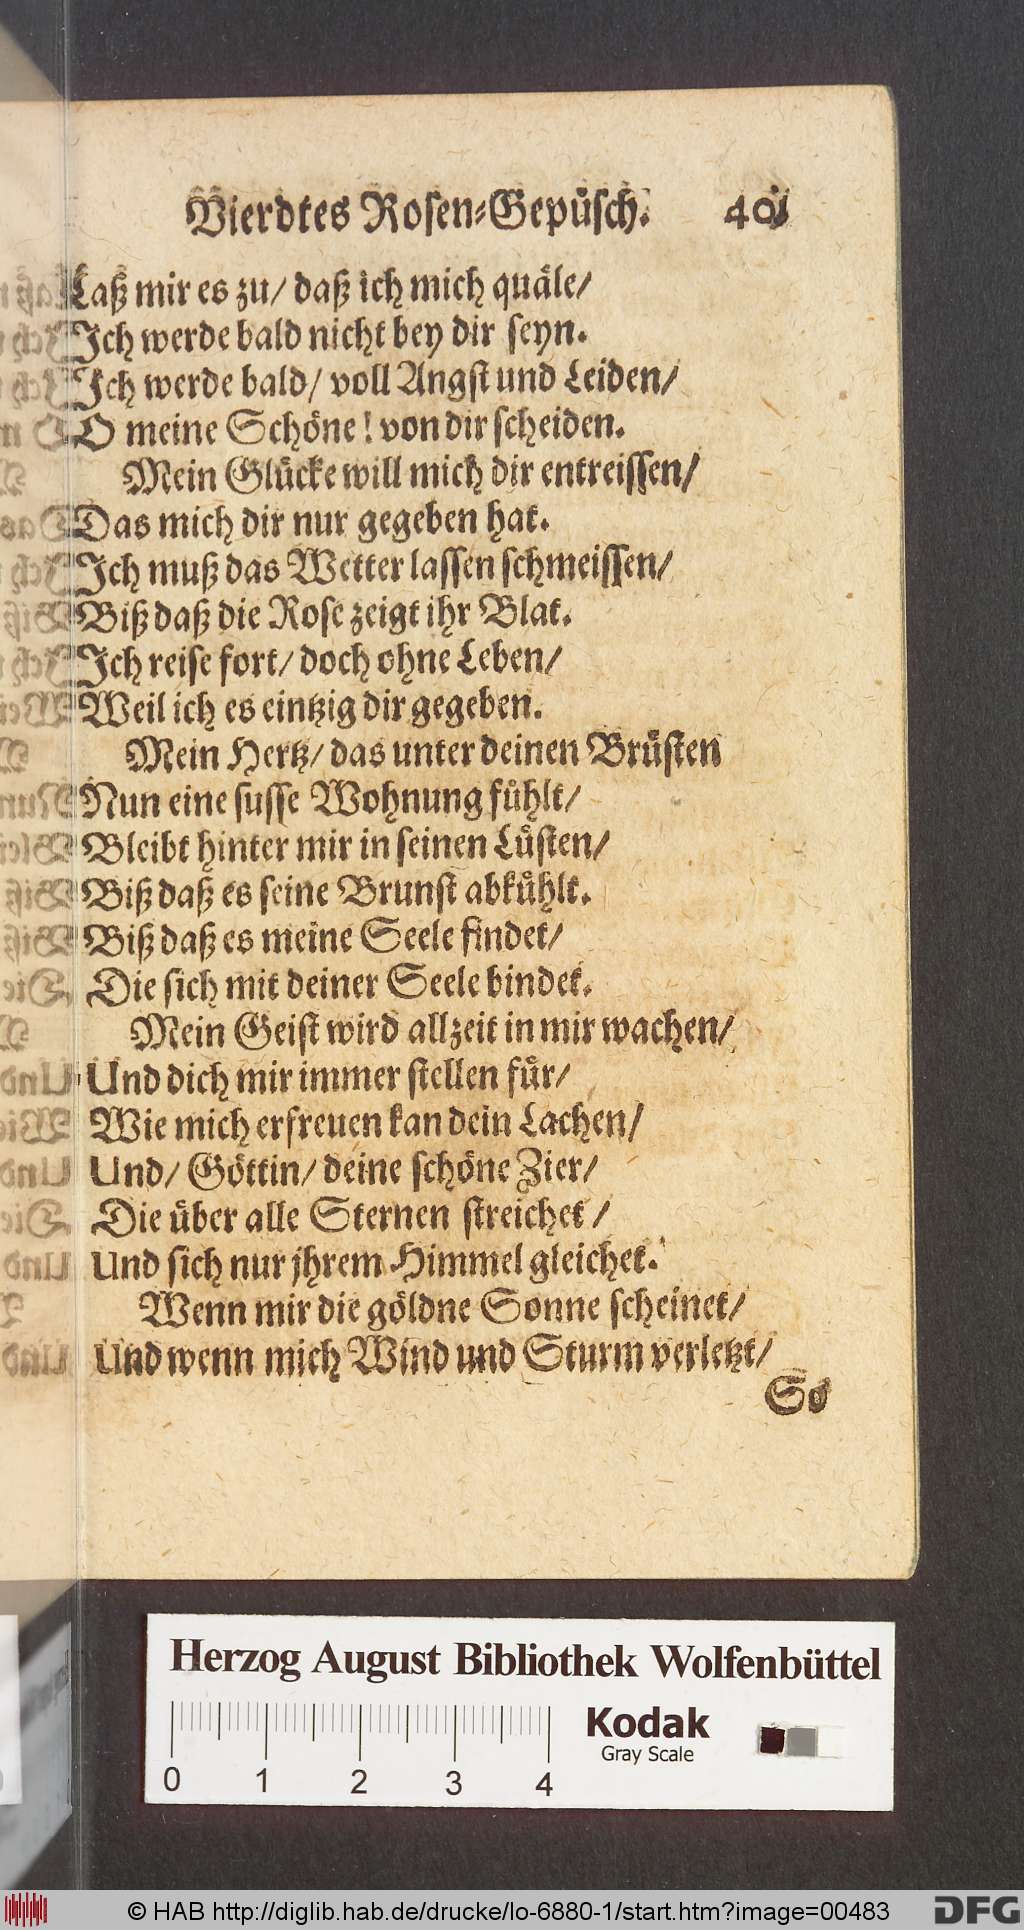 Vierdtes Rosen-Gepüsch. 401
Laß mir es zu/ daß ich mich quäle/
Ich werde bald nicht bey dir seyn.
Ich werde bald/ voll Angst und Leiden/
O meine Schöne! von dir scheiden.
Mein Glücke will mich dir entreissen/
Das mich dir nur gegeben hat.
Ich muß das Wetter lassen schmeissen/
Biß daß die Rose zeigt ihr Blat.
Ich reise fort/ doch ohne Leben/
Weil ich es eintzig dir gegeben.
Mein Hertz/ das unter deinen Brüsten
Nun eine susse Wohnung fühlt/
Bleibt hinter mir in seinen Lüsten/
Biß daß es seine Brunst abkühlt.
Biß daß es meine Seele findet/
Die sich mit deiner Seele bindet.
Mein Geist wird allzeit in mir wachen/
Und dich mir immer stellen für/
Wie mich erfreuen kan dein Lachen/
Und/ Göttin/ deine schöne Zier/
Die über alle Sternen streichet/
Und sich nur jhrem Himmel gleichet.
Wenn mir die göldne Sonne scheinet/
Und wenn mich Wind und Sturm verletzt/
So
Herzog August Bibliothek Wolfenbüttel
Kodak
Gray Scale
0 1 2 3 4
© HAB http://diglib.hab.de/drucke/lo-6880-1/start.htm?image=00483
DFG